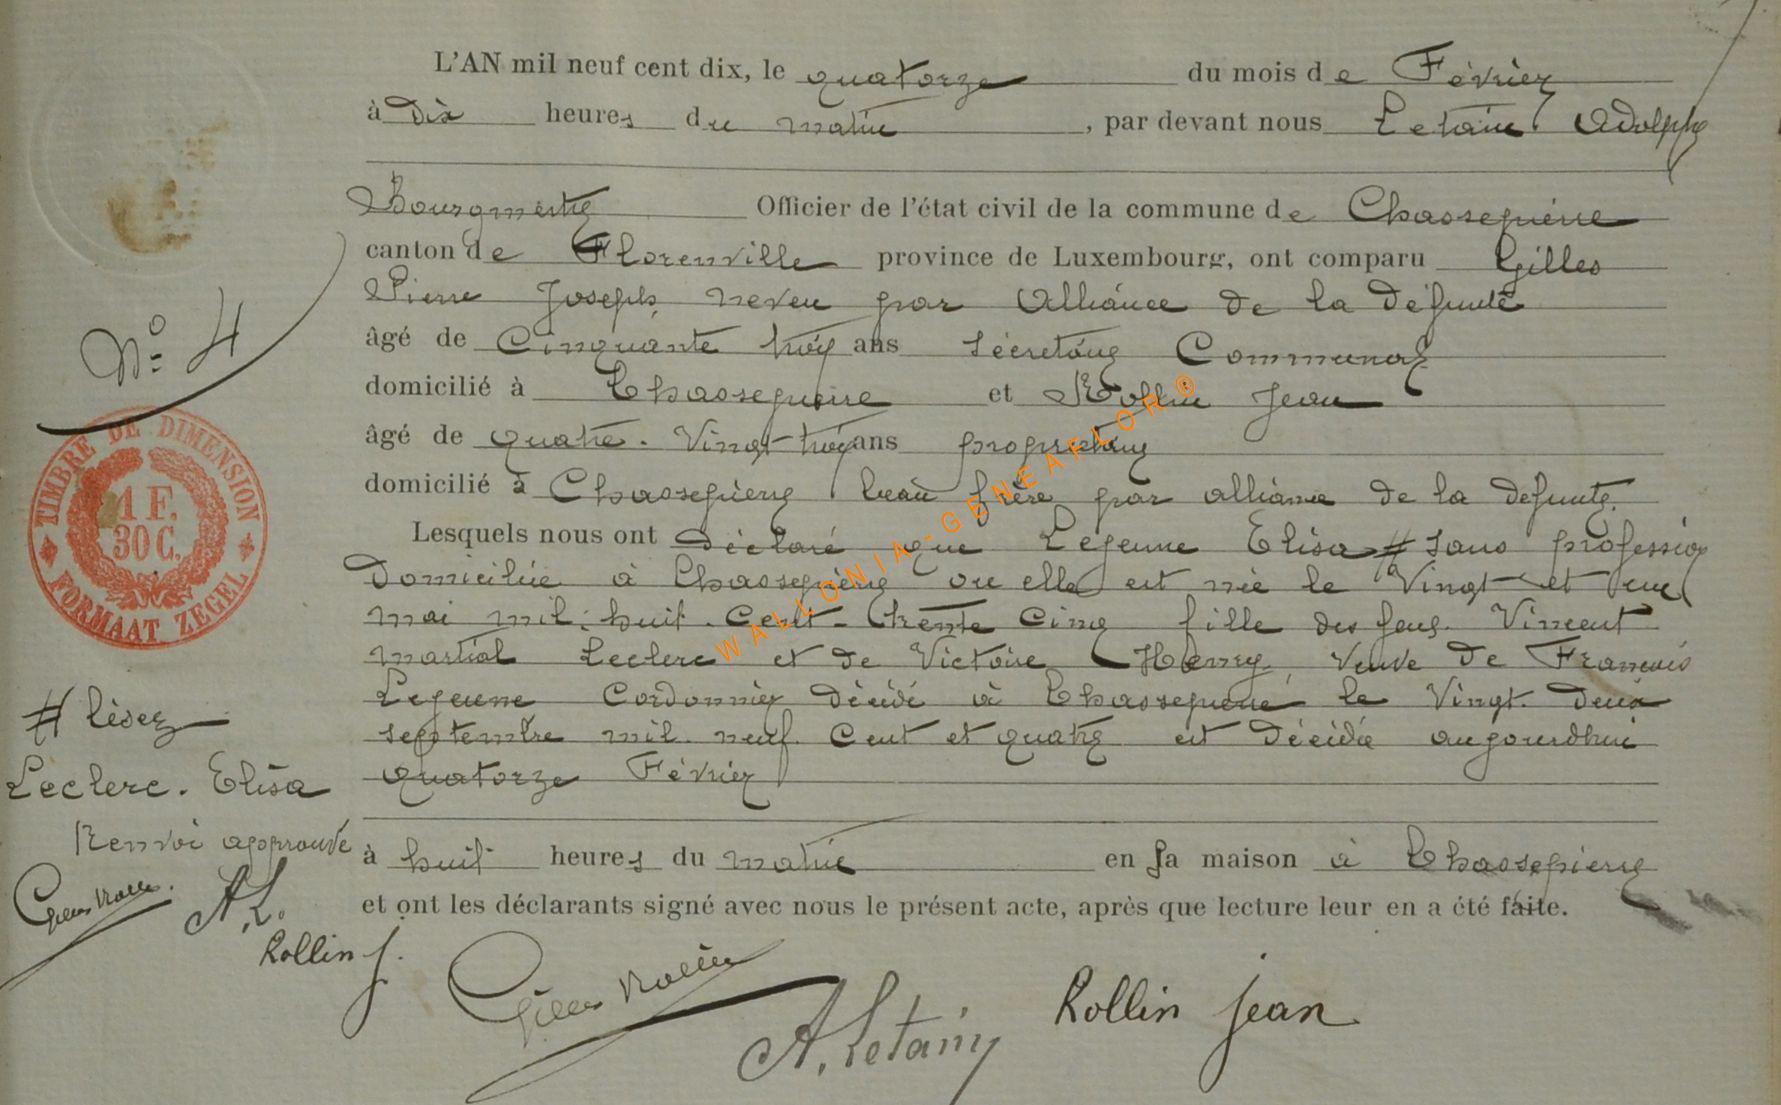 L'AN mil neuf cent dix, le quatorze du mois de Février
à Dix heures du matin, par devant nous Letain Adolphe
Bourgmestre Officier de l'état civil de la commune de Chassepierre
canton de Florenville province de Luxembourg, ont comparu Gilles
Pierre Joseph, neveu par Alliance de la défunte
âgé de Cinquante trois ans Sécrétaire Communal
N° 4
domicilié à Chassepierre et Rollin Jean
âgé de quatre-Vingt-trois ans propriétaire
domicilié à Chassepierre beau frère par alliance de la defunte.
TIMBRE DE DIMENSION
1 F.
30 C.
FORMAAT ZEGEL
Lesquels nous ont Déclaré que Lejeune Elisa # sans profession
Domiciliée à Chassepierre ou elle est née le Vingt et un
mai mil-huit-Cent-trente Cinq fille des feus Vincent
martial Leclerc et de Victoire Henry, Veuve de Francois
Lejeune Cordonnier Décédé à Chassepierre le Vingt-Deux
septembre mil-neuf Cent et quatre est Décédée aujourdhui
quatorze Février
# lisez
Leclerc. Elisa
Renvoi approuvé
à huit heures du matin en sa maison à Chassepierre
et ont les déclarants signé avec nous le présent acte, après que lecture leur en a été faite.
Gilles
A. L.
Rollin J.
Gilles
A. Letain
Rollin Jean
WALLONIA-GENEAFLOR©